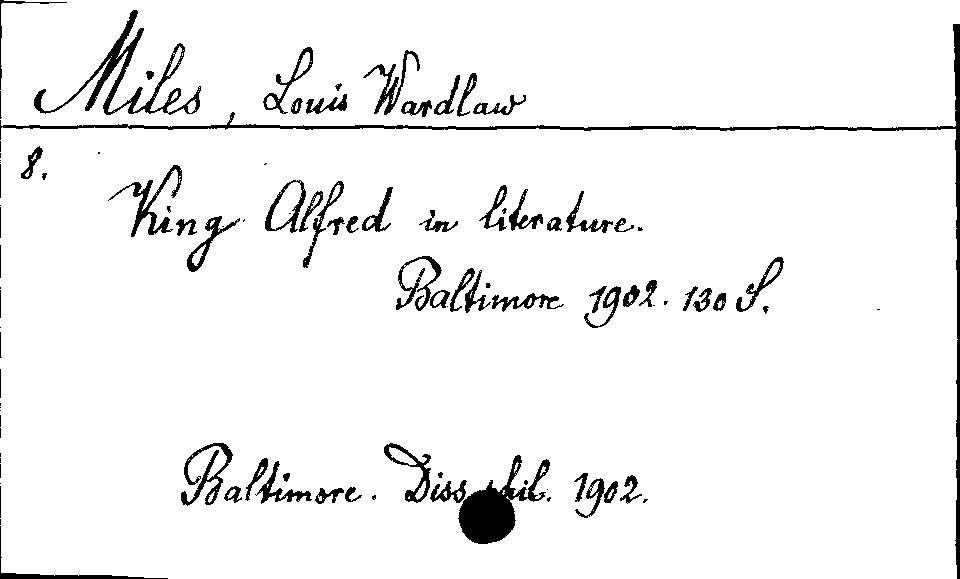 Miles, Louis Wardlaw
8.
King Alfred in literature.
Baltimore 1902. 130 S.
Baltimore. Diss. phil. 1902.